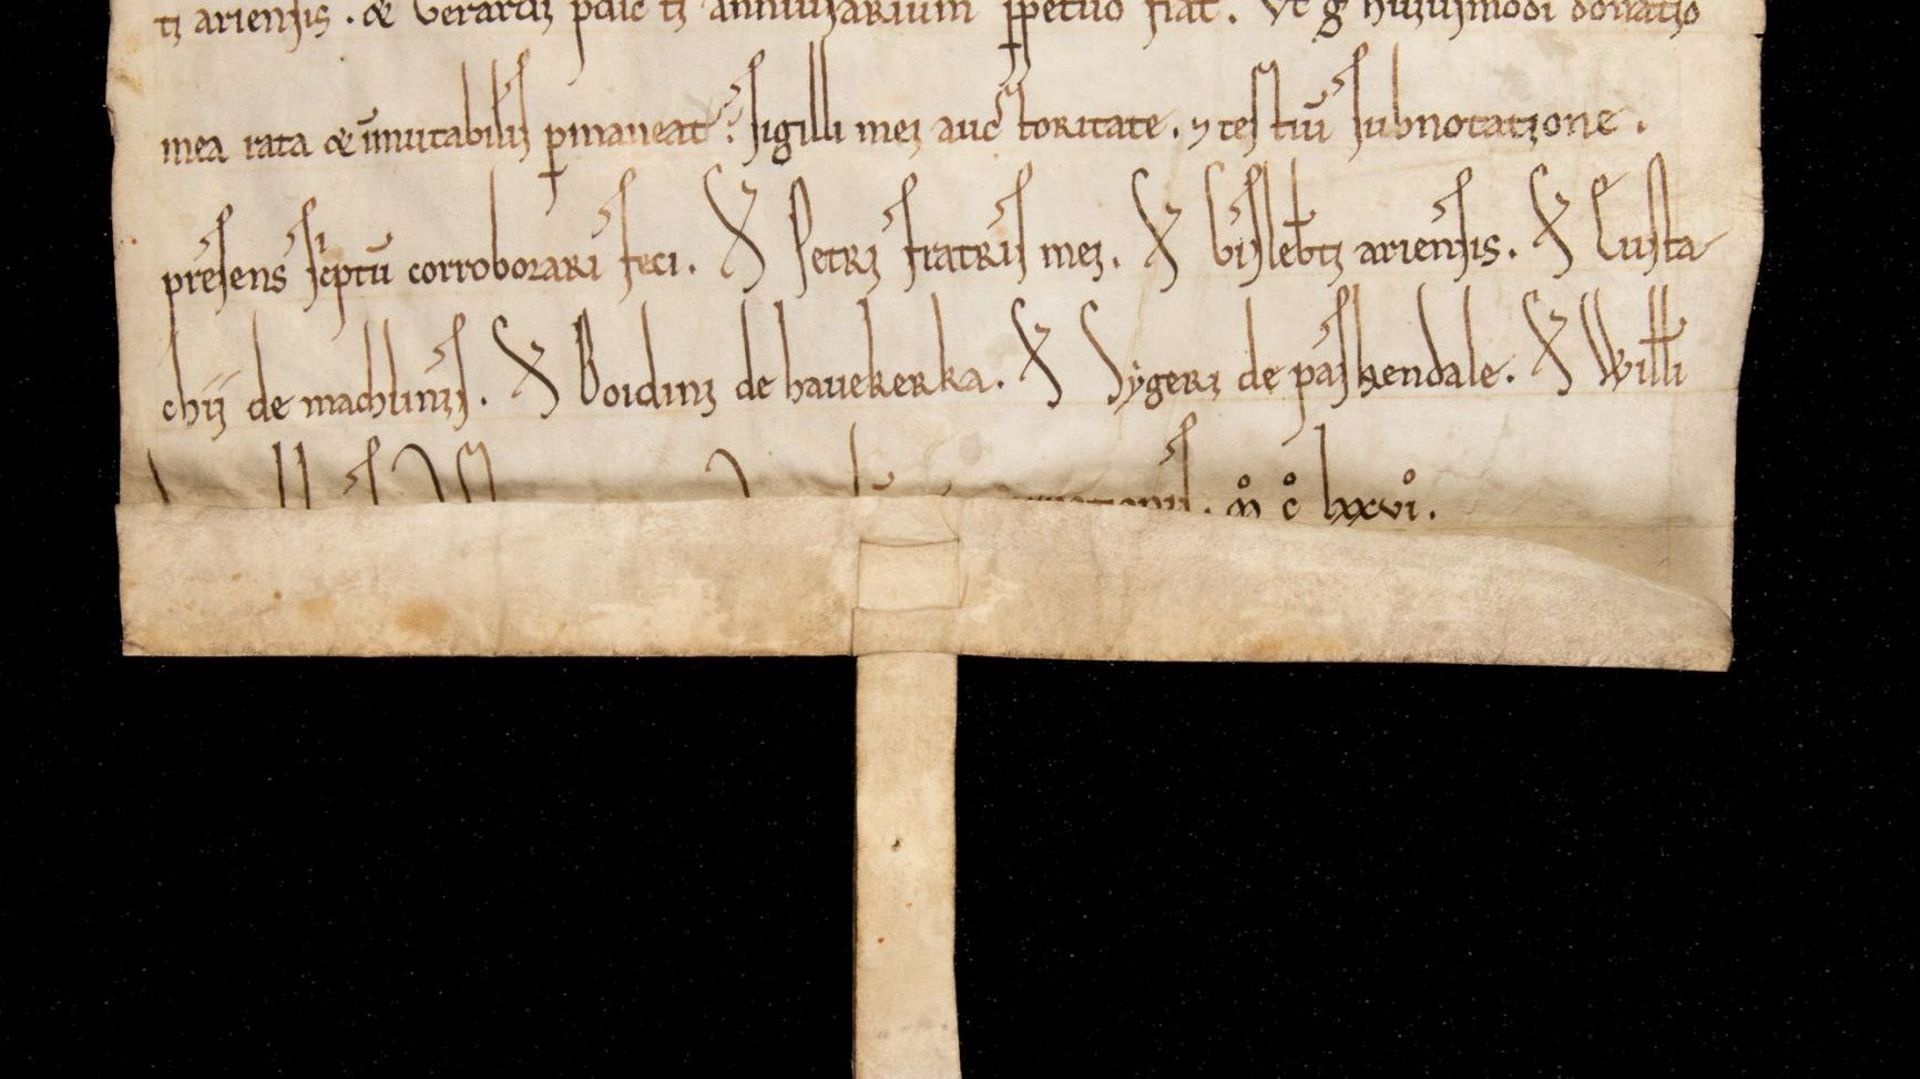 ti ariensis . & Gerardi p̄dicti anniusarium ꝑpetuo fiat . Vt g̊ huiusmodi donatio
mea rata & īmutabilis ꝑmaneat ; sigilli mei auctoritate . ⁊ testiū subnotatione .
presens sc̄ptū corroborari feci . S' Petri fratris mei . S' Gisleb̄ti ariensis . S' Eusta
chij de machlinis . S' Boidini de hauekerka . S' Sygeri de paskendale . S' Willi
. m̊ c̊ lxxvi̊ .